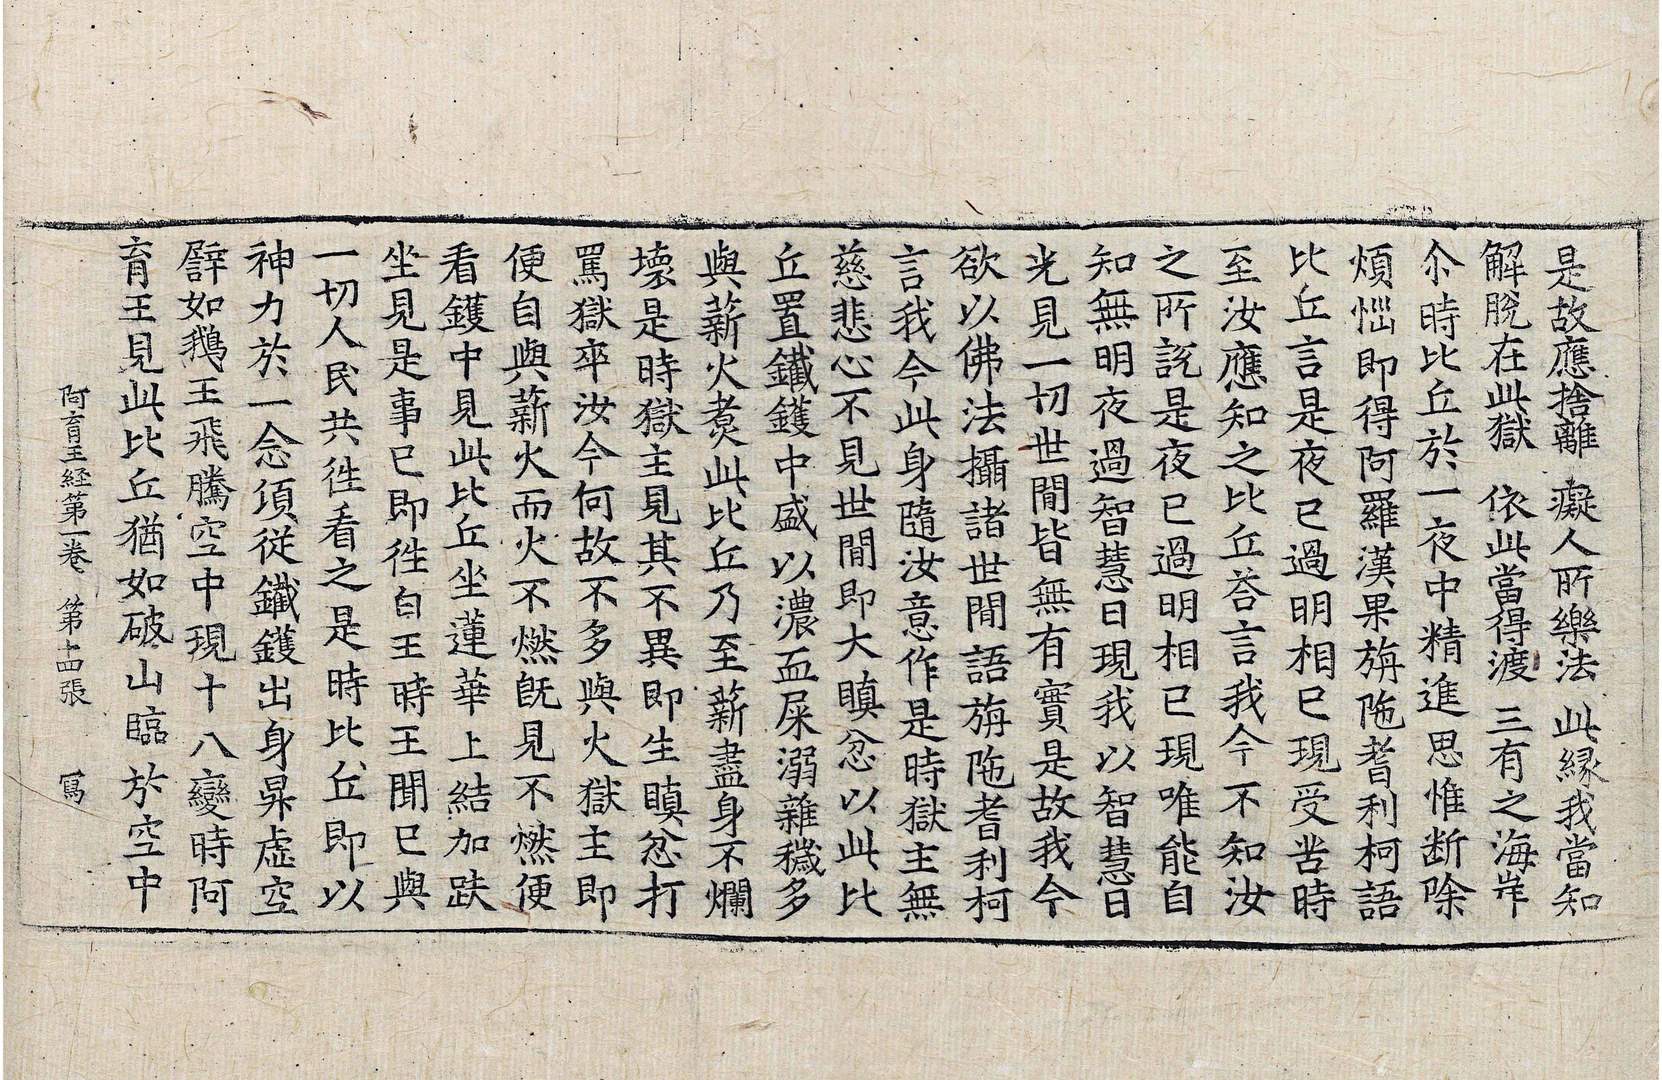 是故應捨離　癡人所樂法　此縁我當知
解脫在此獄　依此當得渡　三有之海岸
尒時比丘於一夜中精進思惟断除
煩惱即得阿羅漢果旃陁耆利柯語
比丘言是夜已過明相已現受苦時
至汝應知之比丘荅言我今不知汝
之所說是夜已過明相已現唯能自
知無明夜過智慧日現我以智慧日
光見一切世間皆無有實是故我今
欲以佛法攝諸世間語旃陁耆利柯
言我今此身隨汝意作是時獄主無
慈悲心不見世間即大瞋忿以此比
丘置鐵鑊中盛以濃血屎溺雜穢多
與薪火煑此比丘乃至薪盡身不爛
壞是時獄主見其不異即生瞋忿打
罵獄卒汝今何故不多與火獄主即
便自與薪火而火不燃旣見不燃便
看鑊中見此比丘坐蓮華上結加趺
坐見是事已即徃白王時王聞已與
一切人民共徃看之是時比丘即以
神力於一念項從鐵鑊出身昇虛空
譬如鵝王飛騰空中現十八變時阿
育王見此比丘猶如破山臨於空中
阿育王経第一卷　第十四張　寫